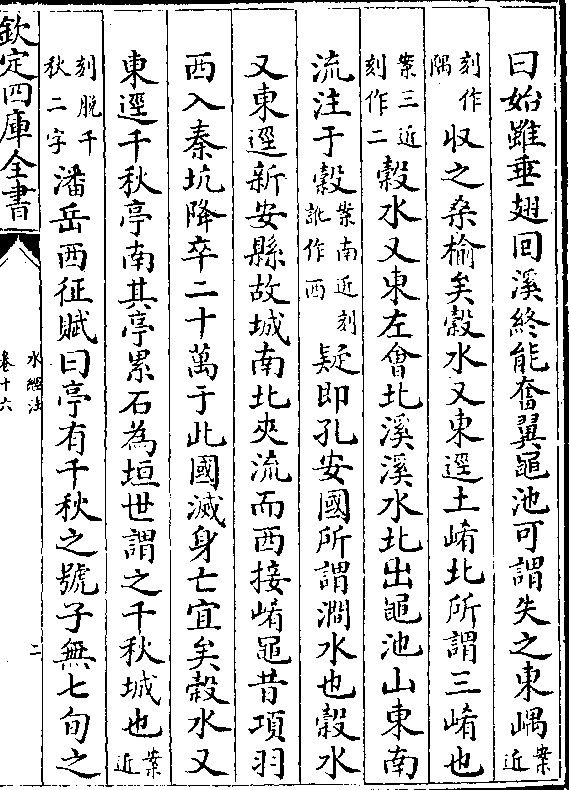 曰始雖垂翅回溪終能奮翼黽池可謂失之東嵎案近
刻作隅收之桑榆矣穀水又東逕土崤北所謂三崤也
案三近刻作二穀水又東左會北溪溪水北出黽池山東南
流注于穀案南近刻訛作西疑即孔安國所謂澗水也穀水
又東逕新安縣故城南北夾流而西接崤黽昔項羽
西入秦坑降卒二十萬于此國滅身亡宜矣穀水又
東逕千秋亭南其亭累石為垣世謂之千秋城也案近
刻脫千秋二字潘岳西征賦曰亭有千秋之號子無七旬之
欽定四庫全書
水經注
卷十六
二